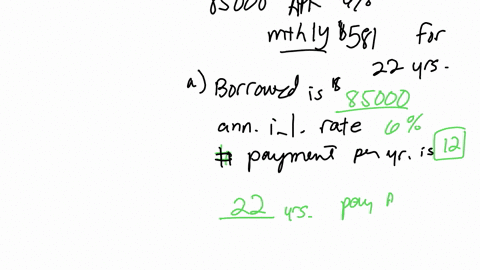 85000 APR 6%
mthly $581 for
22 yrs.
a) Borrowed is $ 85000
ann. int. rate 6%
# payment per yr. is 12
22 yrs. pay